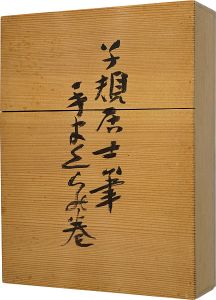 子規居士筆
手まくらの巻